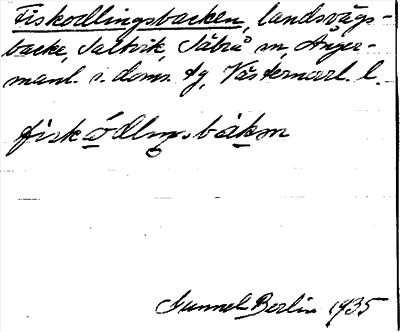 Fiskodlingsbacken, landsvägs-
backe, Saltvik, Säbrå sn, Ånger-
manl. s. doms. tg, Västernorrl. l.
fiskòdlıŋsbákən
Gunnel Berlin 1935